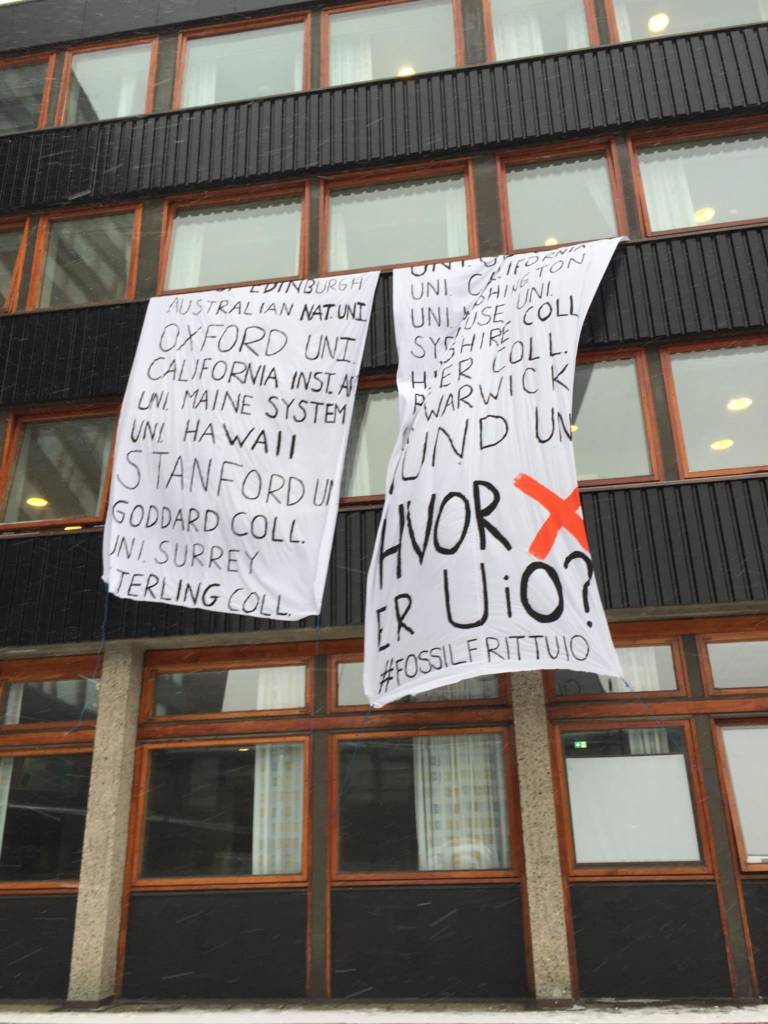 EDINBURGH
AUSTRALIAN NAT. UNI.
OXFORD UNI.
CALIFORNIA INST. AF
UNI. MAINE SYSTEM
UNI. HAWAII
STANFORD UN
GODDARD COLL.
UNI. SURREY
TERLING COLL.
UNI.
UNI. CALIFORNIA
UNI. SHINGTON
USE UNI.
SHIRE COLL
ER COLL.
WARWICK
UND UN
HVOR X
ER UiO?
#FOSSILFRITTUIO